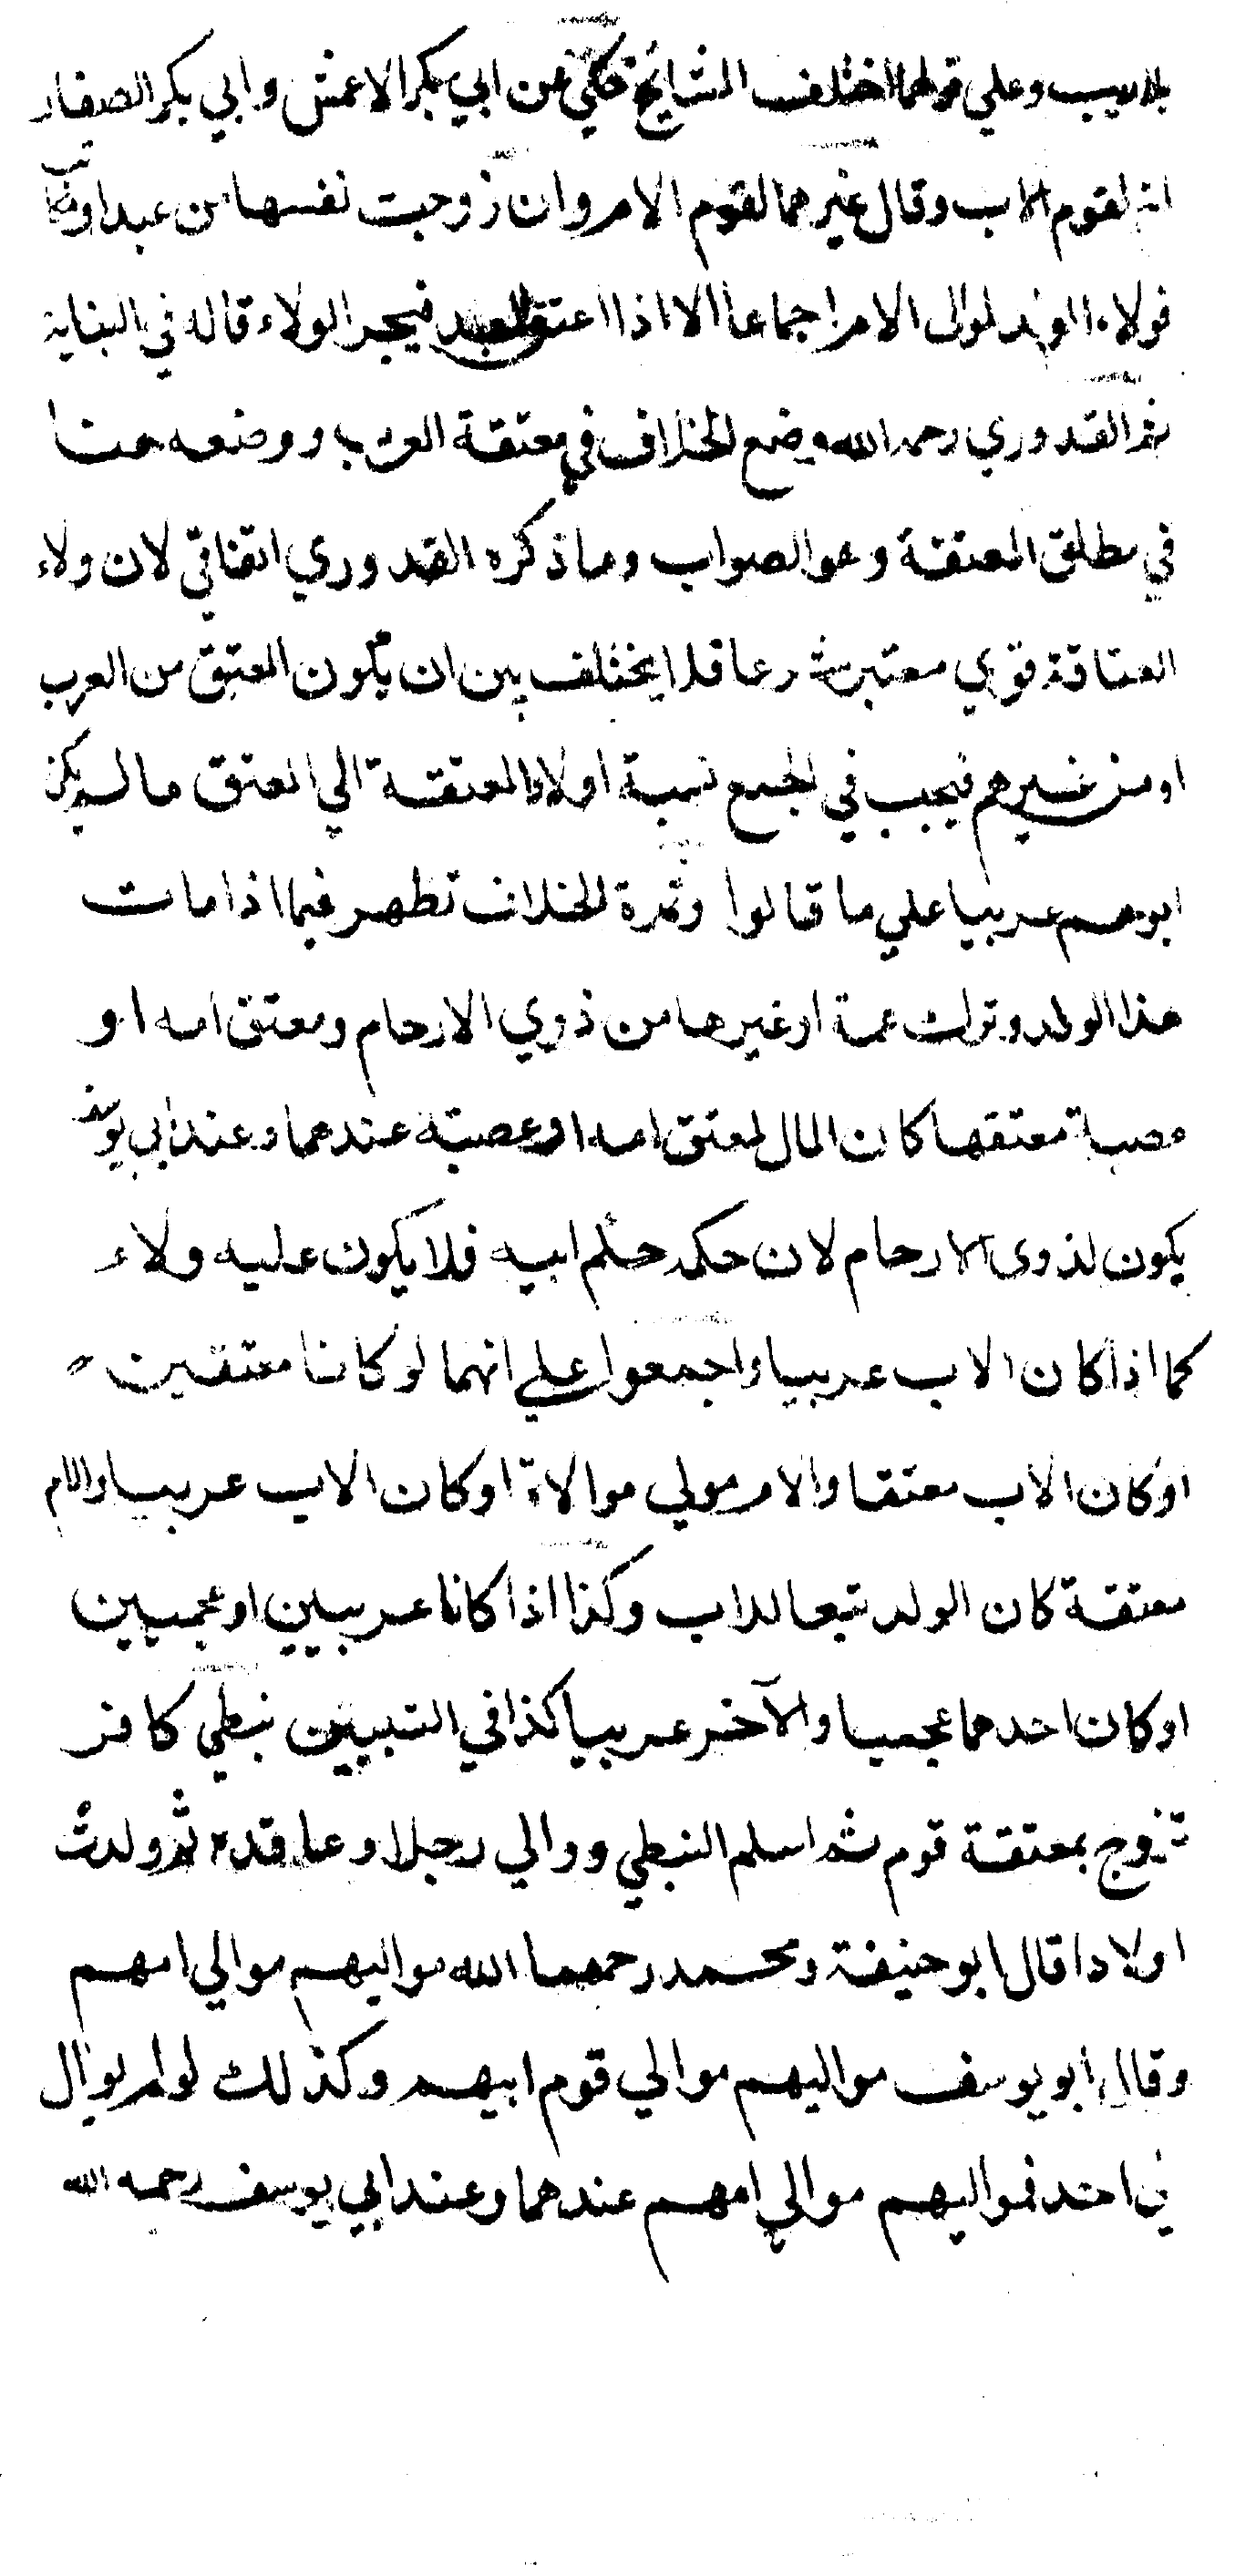 بلا ريب وعلي قولهما اختلف المشايخ فحكي عن ابي بكر الاعمش وابي بكر الصفار
انه لقوم الاب وقال غيرهما لقوم الام وان زوجت نفسها من عبد او مكاتب
فولاء الولد لموالى الام اجماعا الا اذا اعتق العبد فيجر الولاء قاله في البناية
ثم القدوري رحمه الله وضع الخلاف في معتقة العرب ووضعه هنا
في مطلق المعتقة وهو الصواب وما ذكره القدوري اتفاقي لان ولاء
العتاقة قوي معتبر شرعا فلا يختلف بين ان يكون المعتق من العرب
او من غيرهم فيجب في الجمع نسبة اولاد المعتقة الي المعتق ما لم يكن
ابوهم عربيا علي ما قالوا وثمرة الخلاف تظهر فيما اذا مات
هذا الولد وترك عمة او غيرها من ذوي الارحام ومعتق امه او
عصبة معتقها كان المال لمعتق امه او عصبته عندهما وعند ابي يوسف
يكون لذوى الارحام لان حكمه حكم ابيه فلا يكون عليه ولاء
كما اذا كان الاب عربيا واجمعوا علي انهما لو كانا معتقين
او كان الاب معتقا والام مولي موالاة او كان الاب عربيا والام
معتقة كان الولد تبعا للاب وكذا اذا كانا عربيين او عجميين
او كان احدهما عجميا والآخر عربيا كذا في التبيين نبطي كافر
تزوج بمعتقة قوم ثم اسلم النبطي ووالي رجلا وعاقده ثم ولدت
اولادا قال ابو حنيفة ومحمد رحمهما الله مواليهم موالي امهم
وقال ابو يوسف مواليهم موالي قوم ابيهم وكذلك لو لم يوال
احد فمواليهم موالي امهم عندهما وعند ابي يوسف رحمه الله